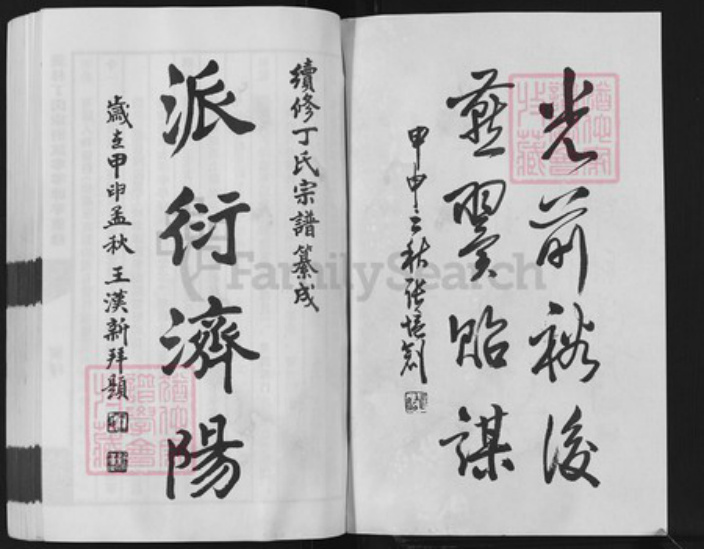 光前裕後
燕翼貽謀
甲申之秋張培劍
續修丁氏宗譜纂成
派衍濟陽
歲在甲申孟秋王漢新拜題
FamilySearch